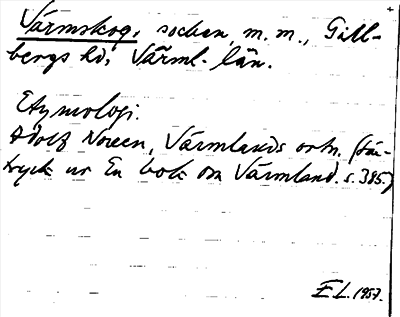 Värmskog, socken, m.m., Gill-
bergs hd, Värml. län.
Etymologi.
Adolf Noreen, Värmlands ortn. (Sär-
tryck ur En bok om Värmland. s. 385)
E L. 1957.